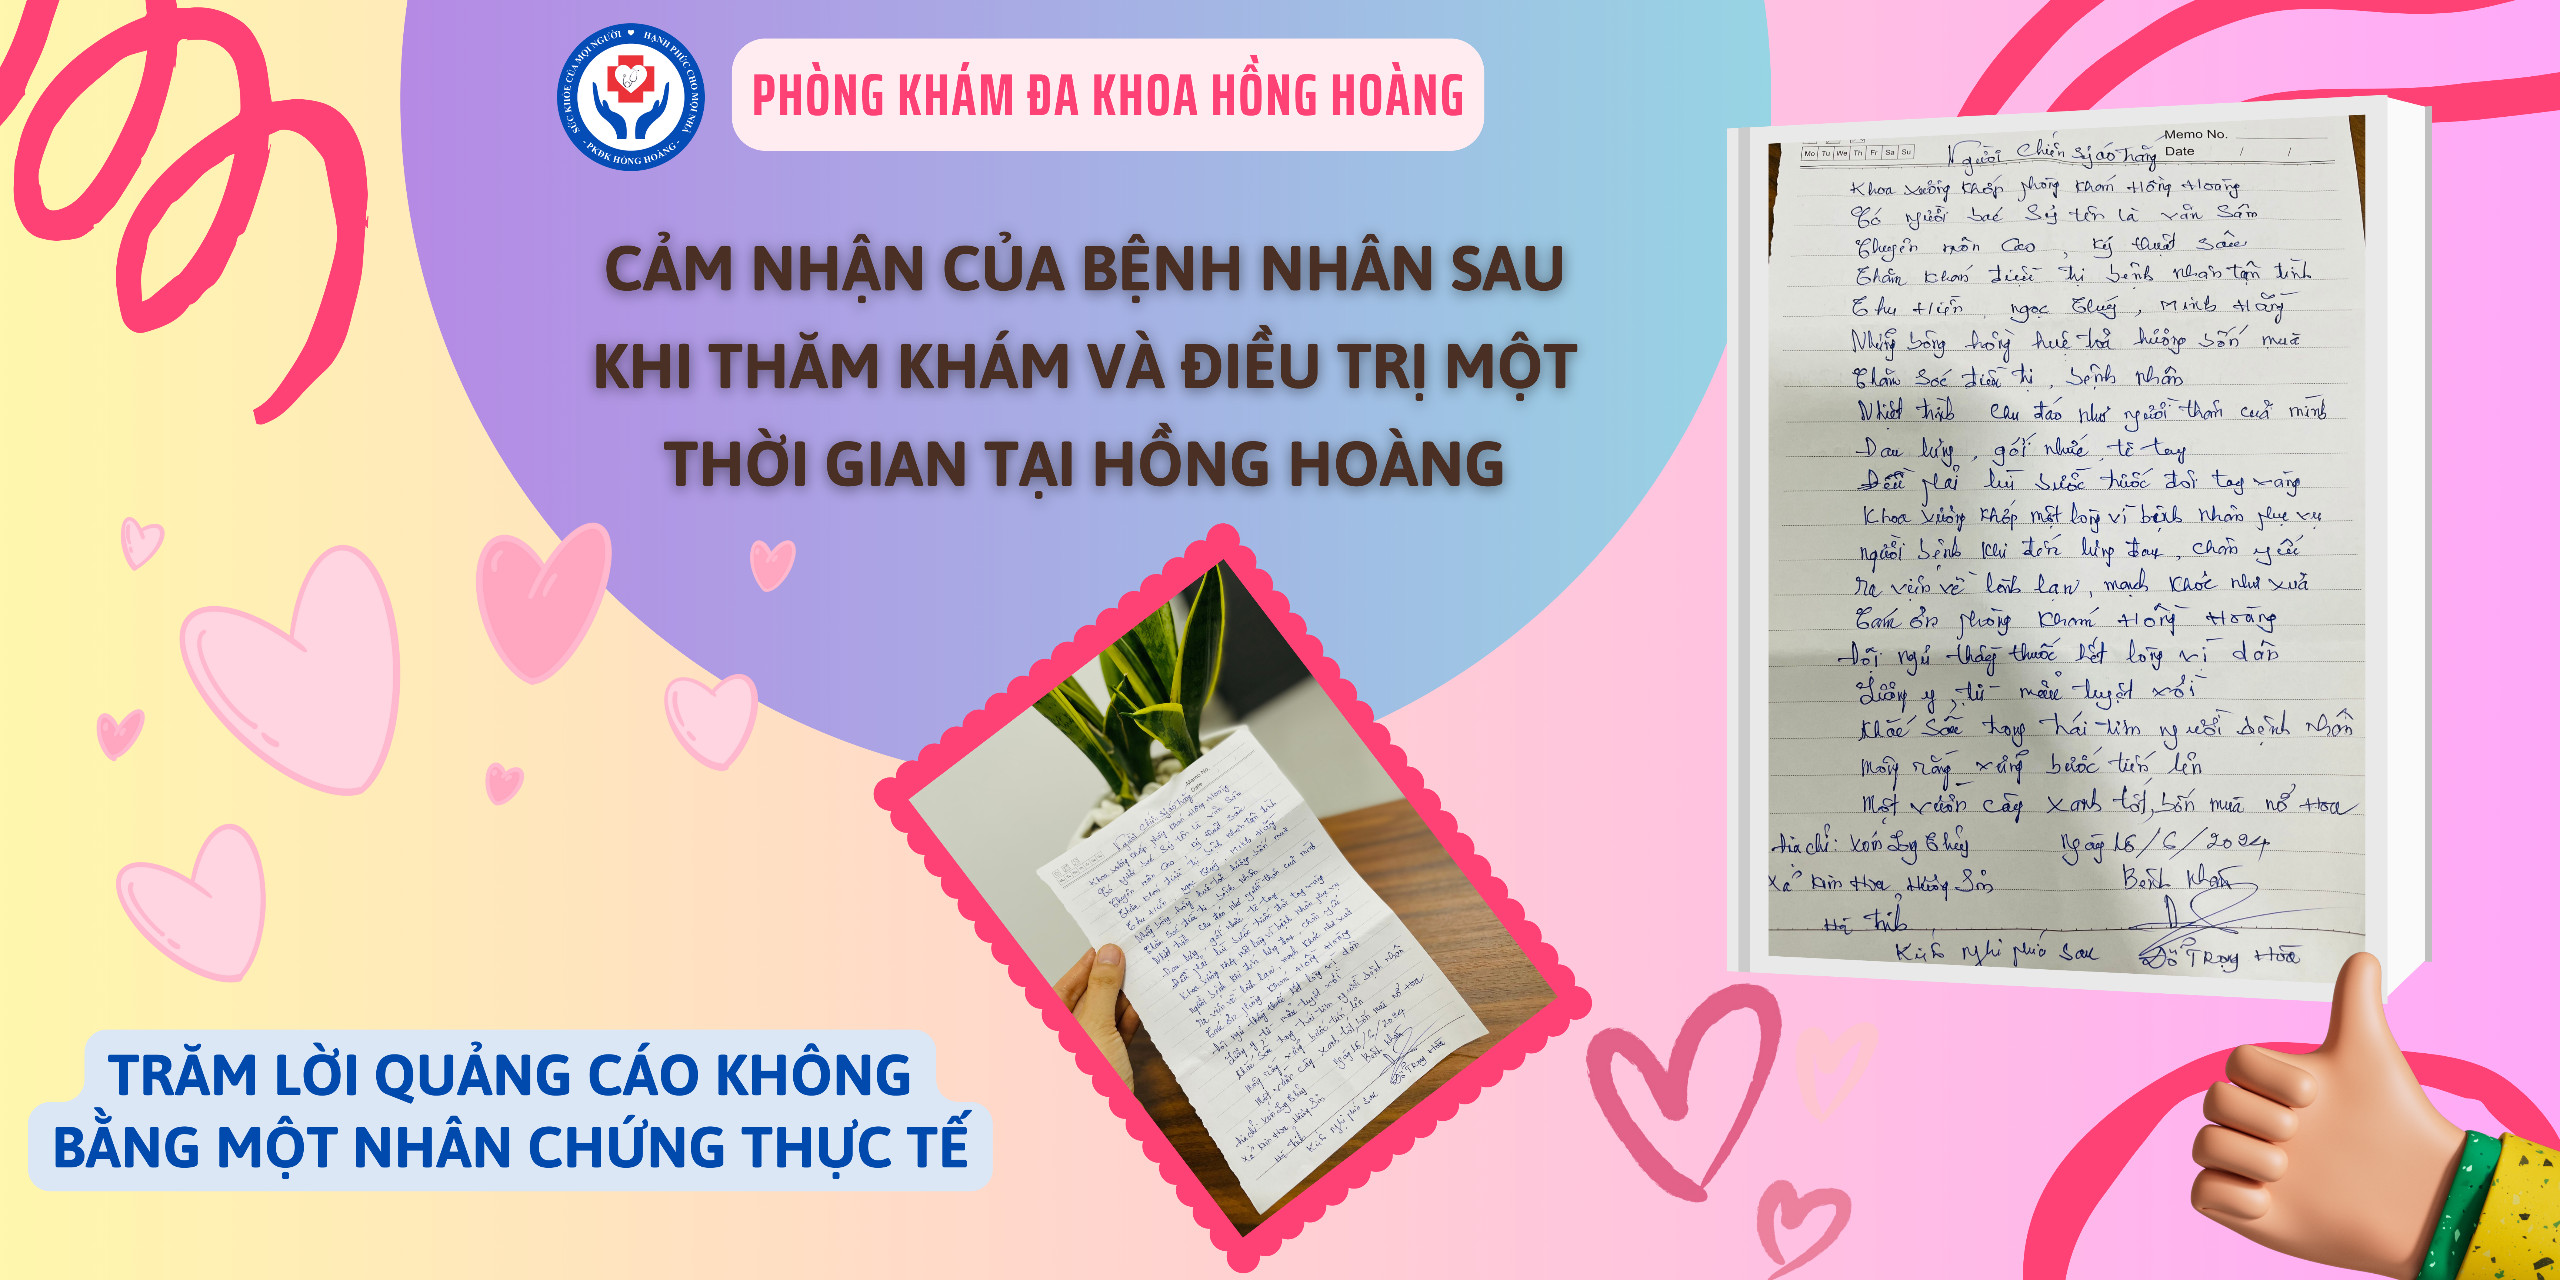 SỨC KHỎE CỦA MỌI NGƯỜI ♥ HẠNH PHÚC CHO MỌI NHÀ
- PKĐK HỒNG HOÀNG -
PHÒNG KHÁM ĐA KHOA HỒNG HOÀNG
CẢM NHẬN CỦA BỆNH NHÂN SAU
KHI THĂM KHÁM VÀ ĐIỀU TRỊ MỘT
THỜI GIAN TẠI HỒNG HOÀNG
TRĂM LỜI QUẢNG CÁO KHÔNG
BẰNG MỘT NHÂN CHỨNG THỰC TẾ
Memo No.
Mo Tu We Th Fr Sa Su
Date / /
Người chiến sỹ áo trắng
Khoa xương khớp phòng khám Hồng Hoàng
Có người bác sỹ tên là văn Sâm
Chuyên môn cao, kỹ thuật sâu
Thăm khám điều trị bệnh nhân tận tình
Thu Hiền, ngọc Thuý, Minh Hằng
Những bông hồng huệ toả hương bốn mùa
Chăm sóc điều trị, bệnh nhân
Nhiệt tình chu đáo như người thân của mình
Đau lưng, gối nhức, tê tay
Đều phải lùi bước trước đôi tay vàng
Khoa xương khớp một lòng vì bệnh nhân phục vụ
người bệnh khi đến lưng đau, chân yếu
Ra viện về lành lặn, mạnh khoẻ như xưa
Cám ơn phòng khám Hồng Hoàng
Đội ngũ thầy thuốc hết lòng vì dân
Lương y từ mẫu tuyệt vời
Khắc sâu trong trái tim người bệnh nhân
Mong rằng vững bước tiến lên
Một vườn cây xanh tốt, bốn mùa nở hoa
Địa chỉ: xóm Thủy Ngày 16/6/2024
Xã Kim Hoa, Hương Sơn Bệnh nhân
Hà Tĩnh
Đỗ Trọng Hòa